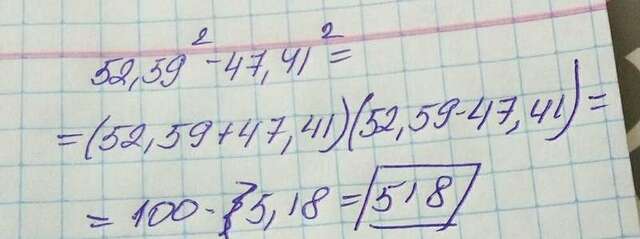 52,59² - 47,41² =
= (52,59 + 47,41)(52,59 - 47,41) =
= 100 · 5,18 = 518